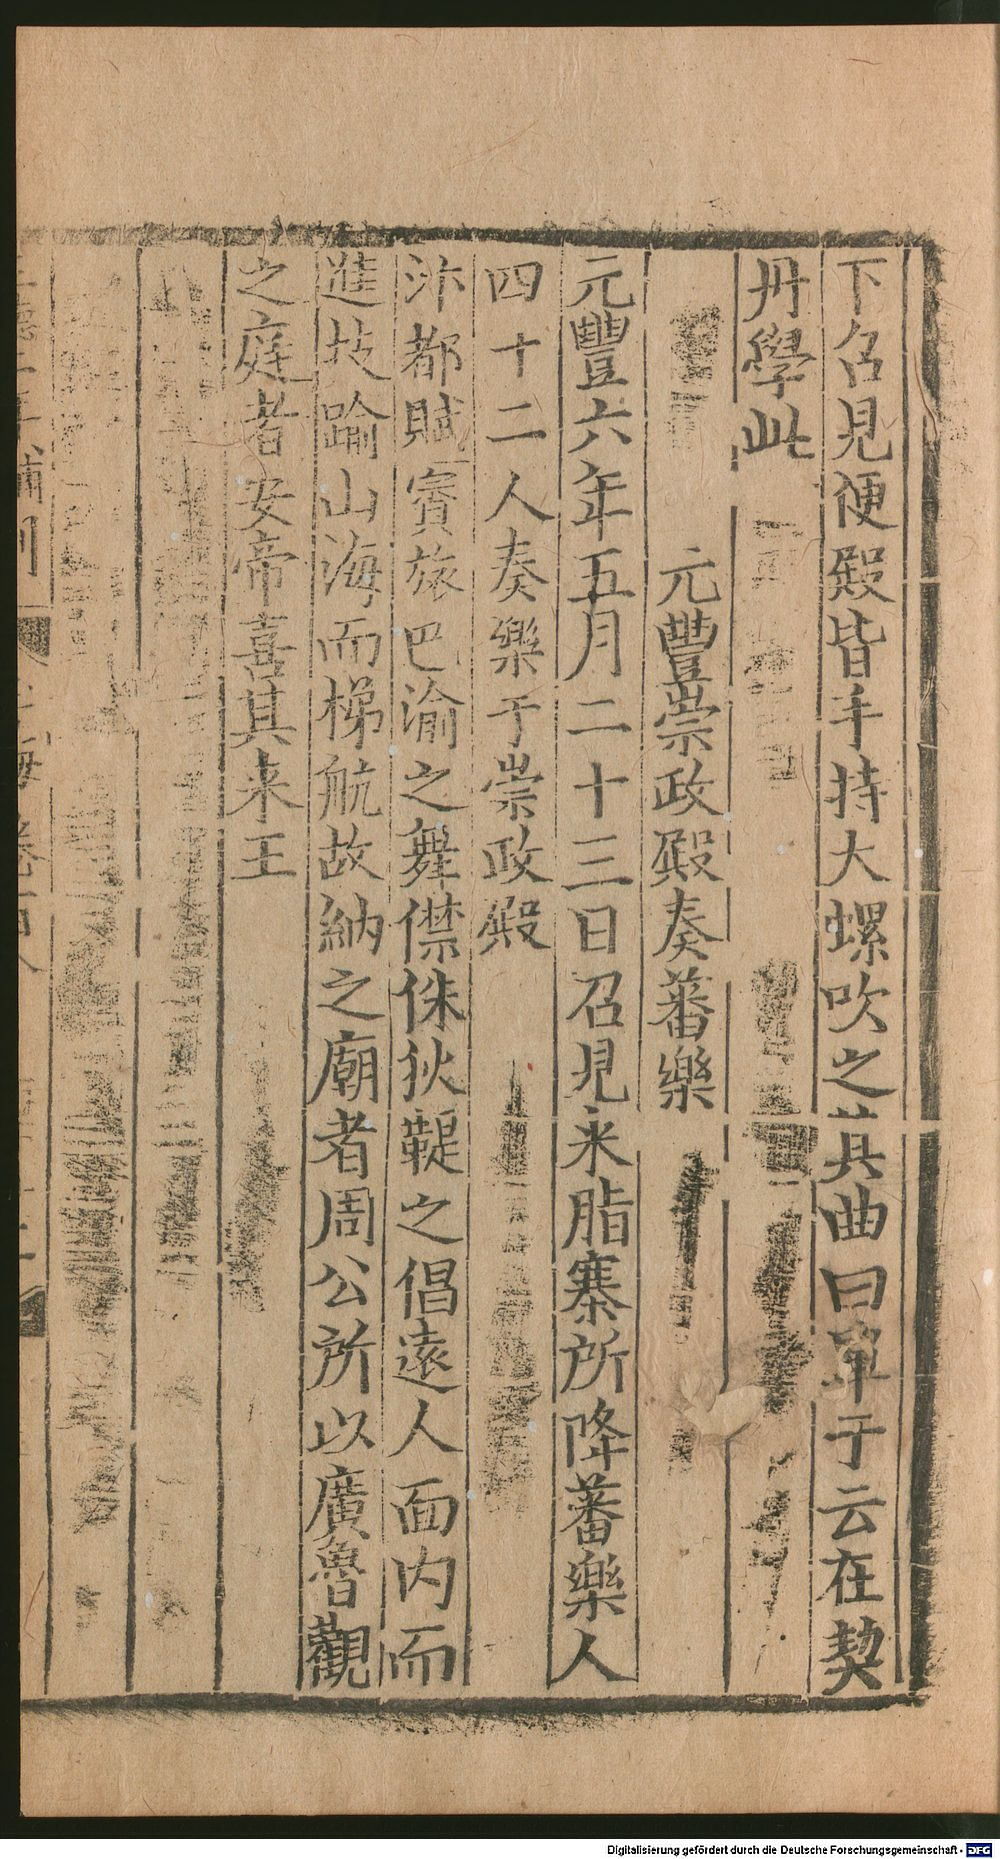 下召見便殿皆手持大螺吹之其曲曰單于云在契
丹學此
元豐崇政殿奏蕃樂
元豐六年五月二十三日召見米脂寨所降蕃樂人
四十二人奏樂于崇政殿
汴都賦賨旅巴渝之舞僸侏狄鞮之倡遠人面内而
進技踰山海而梯航故納之廟者周公所以廣魯觀
之庭者安帝喜其来王
Digitalisierung gefördert durch die Deutsche Forschungsgemeinschaft - DFG